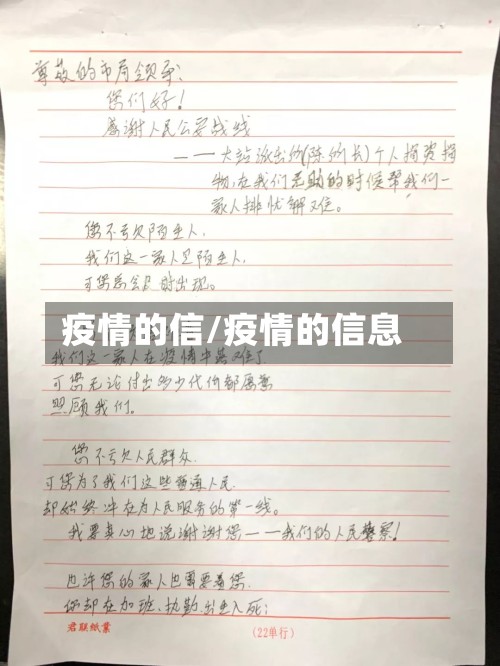 尊敬的市局领导:
您们好!
感谢人民公安战线
——大站派出所(陈所长)个人捐资捐
物,在我们无助的时候帮我们一
家人排忧解难。
您不亏欠陌生人,
我们这一家人是陌生人,
可您总会及时出现。
疫情的信/疫情的信息
我们这一家人在疫情中
可您无论付出多少代价都愿意
照顾我们。
您不亏欠人民群众
可您为了我们这些普通人民
却始终冲在为人民服务的第一线。
我要真心地说谢谢您——我们的人民警察!
也许您的家人也需要着您
您却在加班、执勤、出生入死;
君联纸业
(22单行)